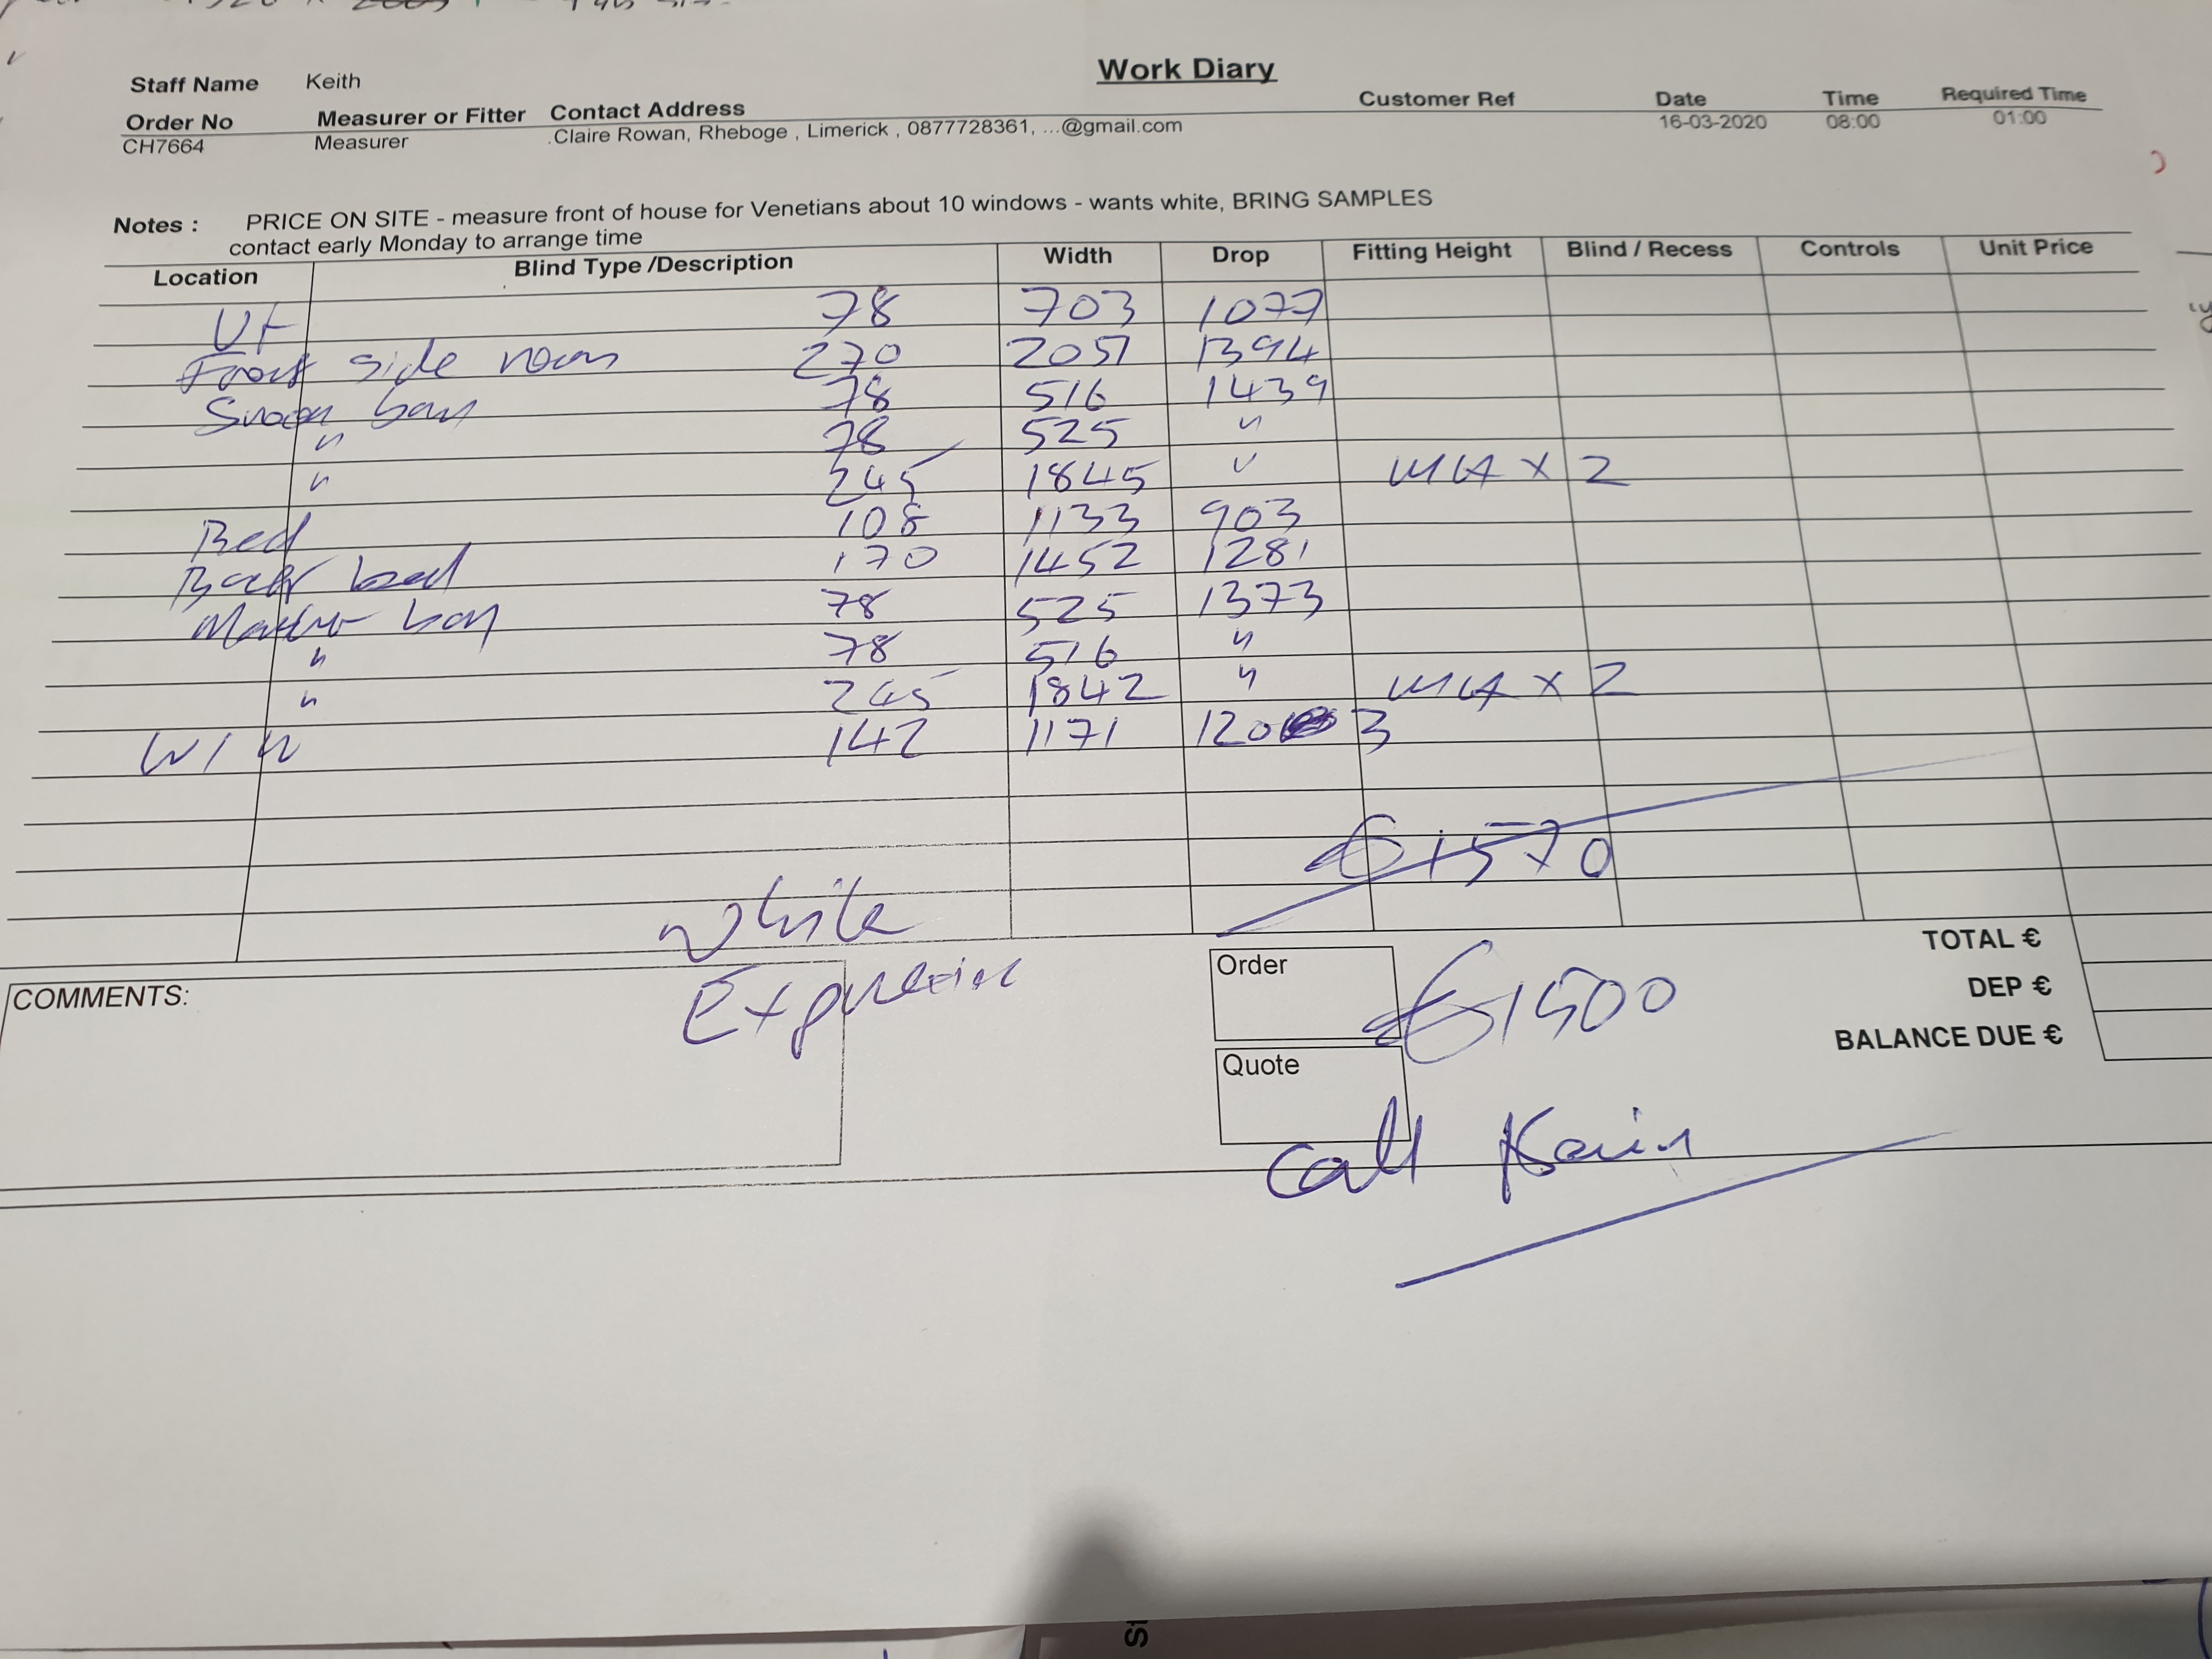 Work Diary
Staff Name Keith
Order No Measurer or Fitter Contact Address Customer Ref Date Time Required Time
CH7664 Measurer .Claire Rowan, Rheboge , Limerick , 0877728361, ...@gmail.com 16-03-2020 08:00 01:00
Notes : PRICE ON SITE - measure front of house for Venetians about 10 windows - wants white, BRING SAMPLES
contact early Monday to arrange time
Location Blind Type /Description Width Drop Fitting Height Blind / Recess Controls Unit Price
78 703 1077
side room 270 2051 1394
78 516 1439
" 78 525 "
" 245 1845 " x 2
Bed 108 1133 903
Back bed 170 1452 1281
bay 78 525 1373
" 78 516 "
" 245 1842 " x 2
W/W 142 1171 120 3
€1570
White
COMMENTS: Order €1500 TOTAL €
DEP €
Quote BALANCE DUE €
Call